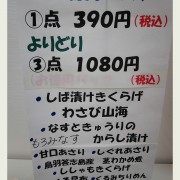 ①点 390円(税込)
よりどり
③点 1080円
(税込)
・しば漬けきくらげ
・わさび山海
・なすときゅうりの
もろみなす からし漬け
・甘口あさり ・しぐれあさり
・鳥羽答志島産 茎わかめ煮
・ししゃもきくらげ
くるみちりめん